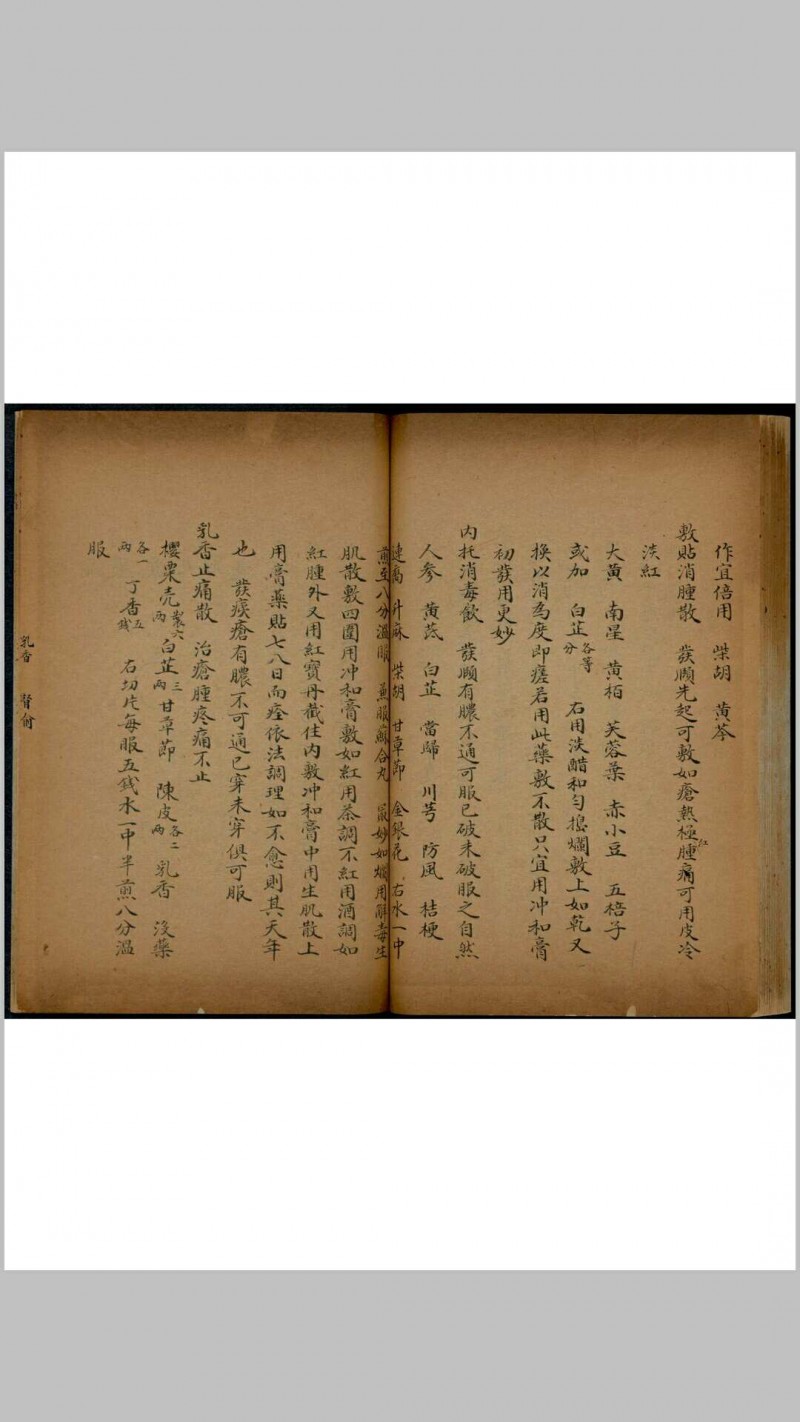 作宜倍用 柴胡 黄芩
敷貼消腫散 發頤先起可敷如瘡熱極腫痛可用皮冷
淡紅
大黄 南星 黄栢 芙蓉葉 赤小豆 五棓子
或加 白芷各等分 右用淡醋和匀搃爛敷上如乾又
換以消為度即瘥若用此藥敷不散只宜用冲和膏
初發用更妙
内托消毒飲 發頤有膿不通可服已破未破服之自然
人参 黄茋 白芷 當歸 川芎 防風 桔梗
連翹 升麻 柴胡 甘草節 金銀花 右水一中
煎至八分溫服 兼服蘇合丸 最妙如爛用解毒生
肌散敷四圍用冲和膏敷如紅用茶調不紅用酒調如
紅腫外又用紅寶丹截住内敷冲和膏中用生肌散上
用膏藥貼七八日而痊依法調理如不愈則其天年
也 發痰瘡有膿不可通已穿未穿俱可服
乳香止痛散 治瘡腫疼痛不止
櫻粟壳製六兩 白芷三兩 甘草節 陳皮各二兩 乳香 没藥
各一兩 丁香五錢 右切片每服五錢水一中半煎八分溫
服
乳香 腎俞